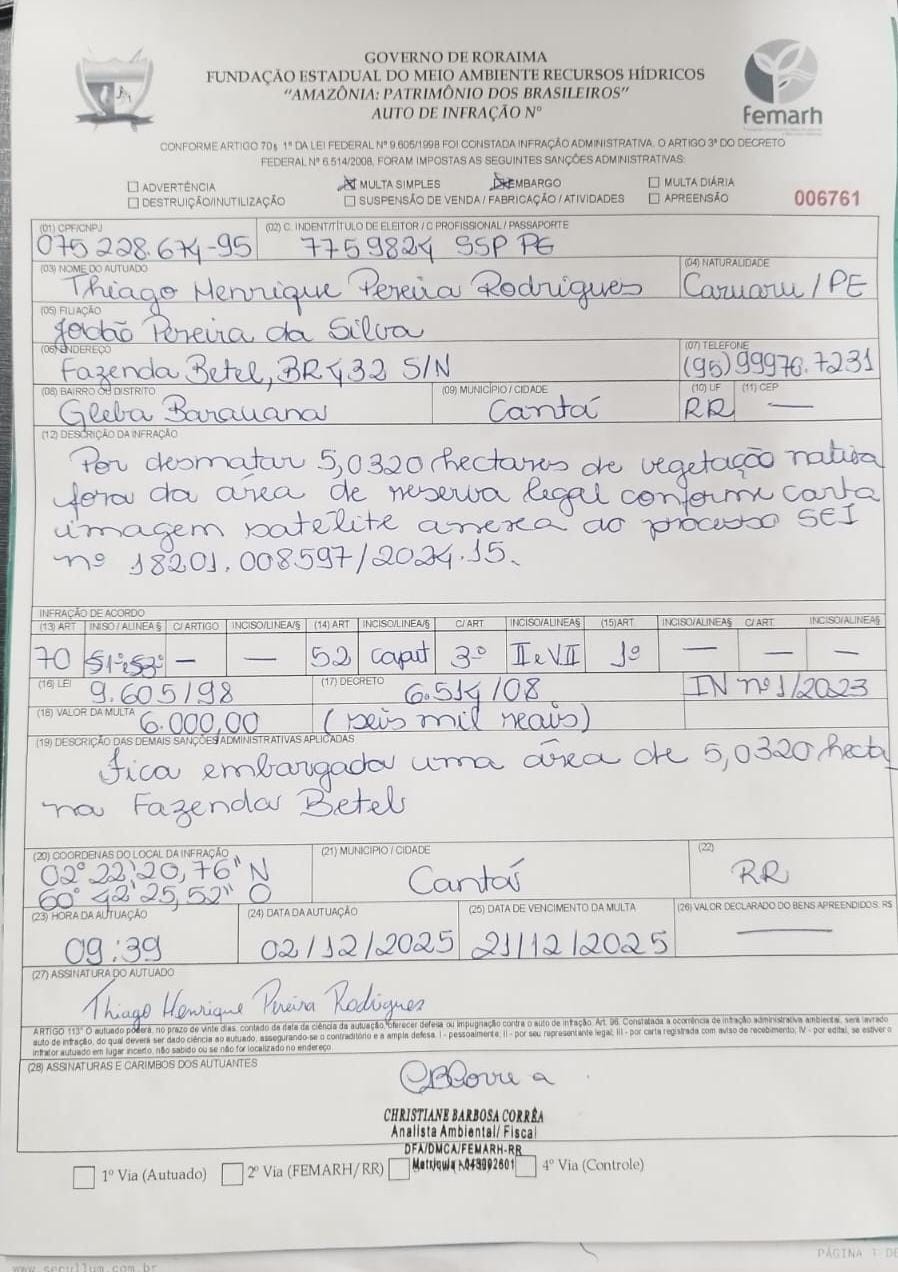 GOVERNO DE RORAIMA
FUNDAÇÃO ESTADUAL DO MEIO AMBIENTE RECURSOS HÍDRICOS
“AMAZÔNIA: PATRIMÔNIO DOS BRASILEIROS”
AUTO DE INFRAÇÃO Nº
femarh
CONFORME ARTIGO 70§ 1º DA LEI FEDERAL Nº 9.605/1998 FOI CONSTADA INFRAÇÃO ADMINISTRATIVA. O ARTIGO 3º DO DECRETO
FEDERAL Nº 6.514/2008, FORAM IMPOSTAS AS SEGUINTES SANÇÕES ADMINISTRATIVAS:
ADVERTÊNCIA MULTA SIMPLES EMBARGO MULTA DIÁRIA
DESTRUIÇÃO/INUTILIZAÇÃO SUSPENSÃO DE VENDA / FABRICAÇÃO / ATIVIDADES APREENSÃO
006761
(01) CPF/CNPJ (02) C. INDENT/TÍTULO DE ELEITOR / C PROFISSIONAL / PASSAPORTE
075 228.674-95 7759824 SSP PE
(03) NOME DO AUTUADO (04) NATURALIDADE
Thiago Henrique Pereira Rodrigues Caruaru / PE
(05) FILIAÇÃO
Jordão Pereira da Silva
(06) ENDEREÇO (07) TELEFONE
Fazenda Betel, BR 432 S/N (95) 99976.7231
(08) BAIRRO OU DISTRITO (09) MUNICÍPIO / CIDADE (10) UF (11) CEP
Gleba Barauana Cantá RR —
(12) DESCRIÇÃO DA INFRAÇÃO
Por desmatar 5,0320 hectares de vegetação nativa
fora da área de reserva legal conforme carta
imagem satélite anexa ao processo SEI
nº 18201.008597/2024.15.
INFRAÇÃO DE ACORDO
(13) ART INISO / ALINEA § C/ ARTIGO INCISO/LINEA/§ (14) ART INCISO/LINEA/§ C/ ART. INCISO/ALINEA§ (15)ART INCISO/ALINEA§ C/ ART. INCISO/ALINEA§
70 §1º e §3º — — 52 caput 3º II e VII 1º — — —
(16) LEI (17) DECRETO
9.605/98 6.514/08 IN nº 1/2023
(18) VALOR DA MULTA
6.000,00 (seis mil reais)
(19) DESCRIÇÃO DAS DEMAIS SANÇÕES ADMINISTRATIVAS APLICADAS
Fica embargada uma área de 5,0320 hecta
na Fazenda Betel
(20) COORDENAS DO LOCAL DA INFRAÇÃO (21) MUNICIPIO / CIDADE (22)
02° 22' 20,76" N
60° 42' 25,52" O
Cantá RR
(23) HORA DA AUTUAÇÃO (24) DATA DA AUTUAÇÃO (25) DATA DE VENCIMENTO DA MULTA (26) VALOR DECLARADO DO BENS APREENDIDOS. R$
09:39 02/12/2025 21/12/2025 —
(27) ASSINATURA DO AUTUADO
Thiago Henrique Pereira Rodrigues
ARTIGO 113º O autuado poderá, no prazo de vinte dias, contado da data da ciência da autuação, oferecer defesa ou impugnação contra o auto de infração. Art. 96. Constatada a ocorrência de infração administrativa ambiental, será lavrado
auto de infração, do qual deverá ser dado ciência ao autuado, assegurando-se o contraditório e a ampla defesa. I - pessoalmente; II - por seu representante legal; III - por carta registrada com aviso de recebimento; IV - por edital, se estiver o
infrator autuado em lugar incerto, não sabido ou se não for localizado no endereço.
(28) ASSINATURAS E CARIMBOS DOS AUTUANTES
CHRISTIANE BARBOSA CORRÊA
Analista Ambiental/ Fiscal
DFA/DMCA/FEMARH-RR
Matrícula
1º Via (Autuado) 2º Via (FEMARH/RR) 4º Via (Controle)
PÁGINA 1 DE
www.secullum.com.br